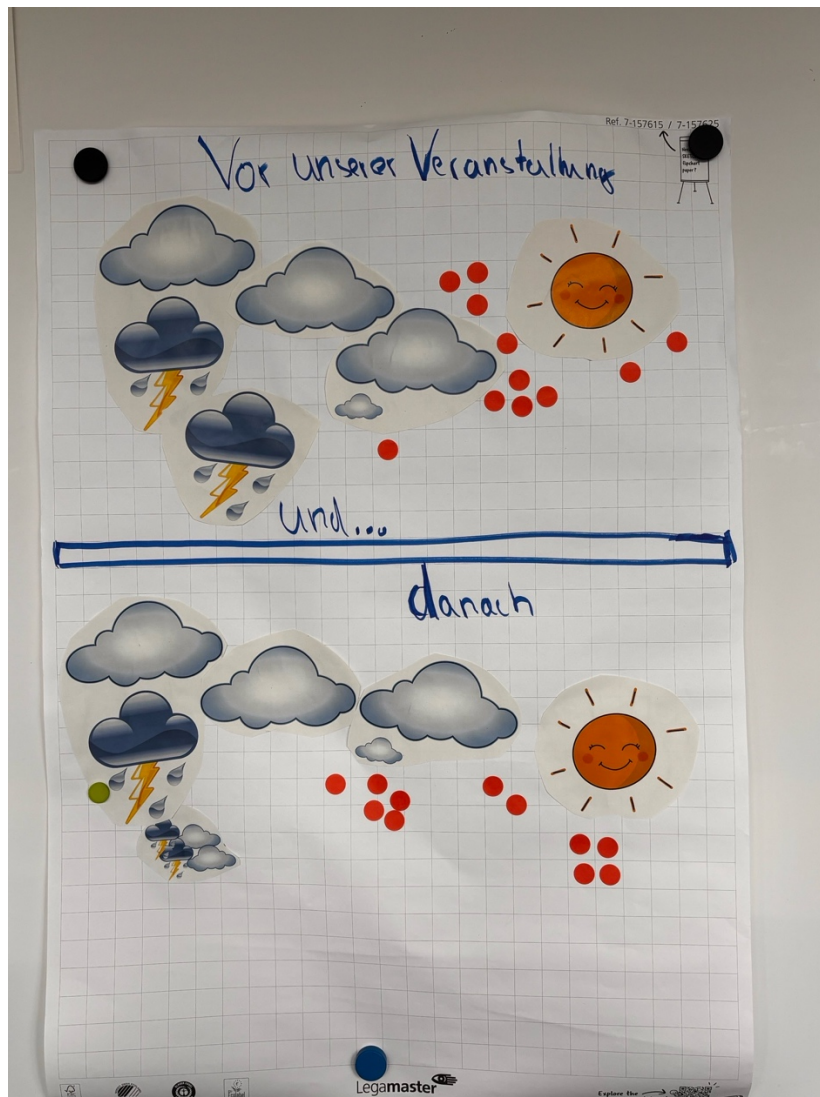 Ref. 7-157615 / 7-157625
Vor unserer Veranstaltung
und...
danach
Legamaster
Explore the